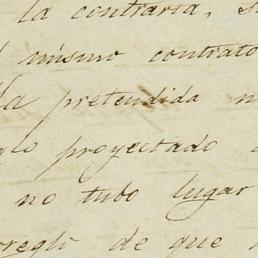 la contraria, s
mismo contrato
La pretendida n
glo proyectado
no tubo lugar
rreglo de que